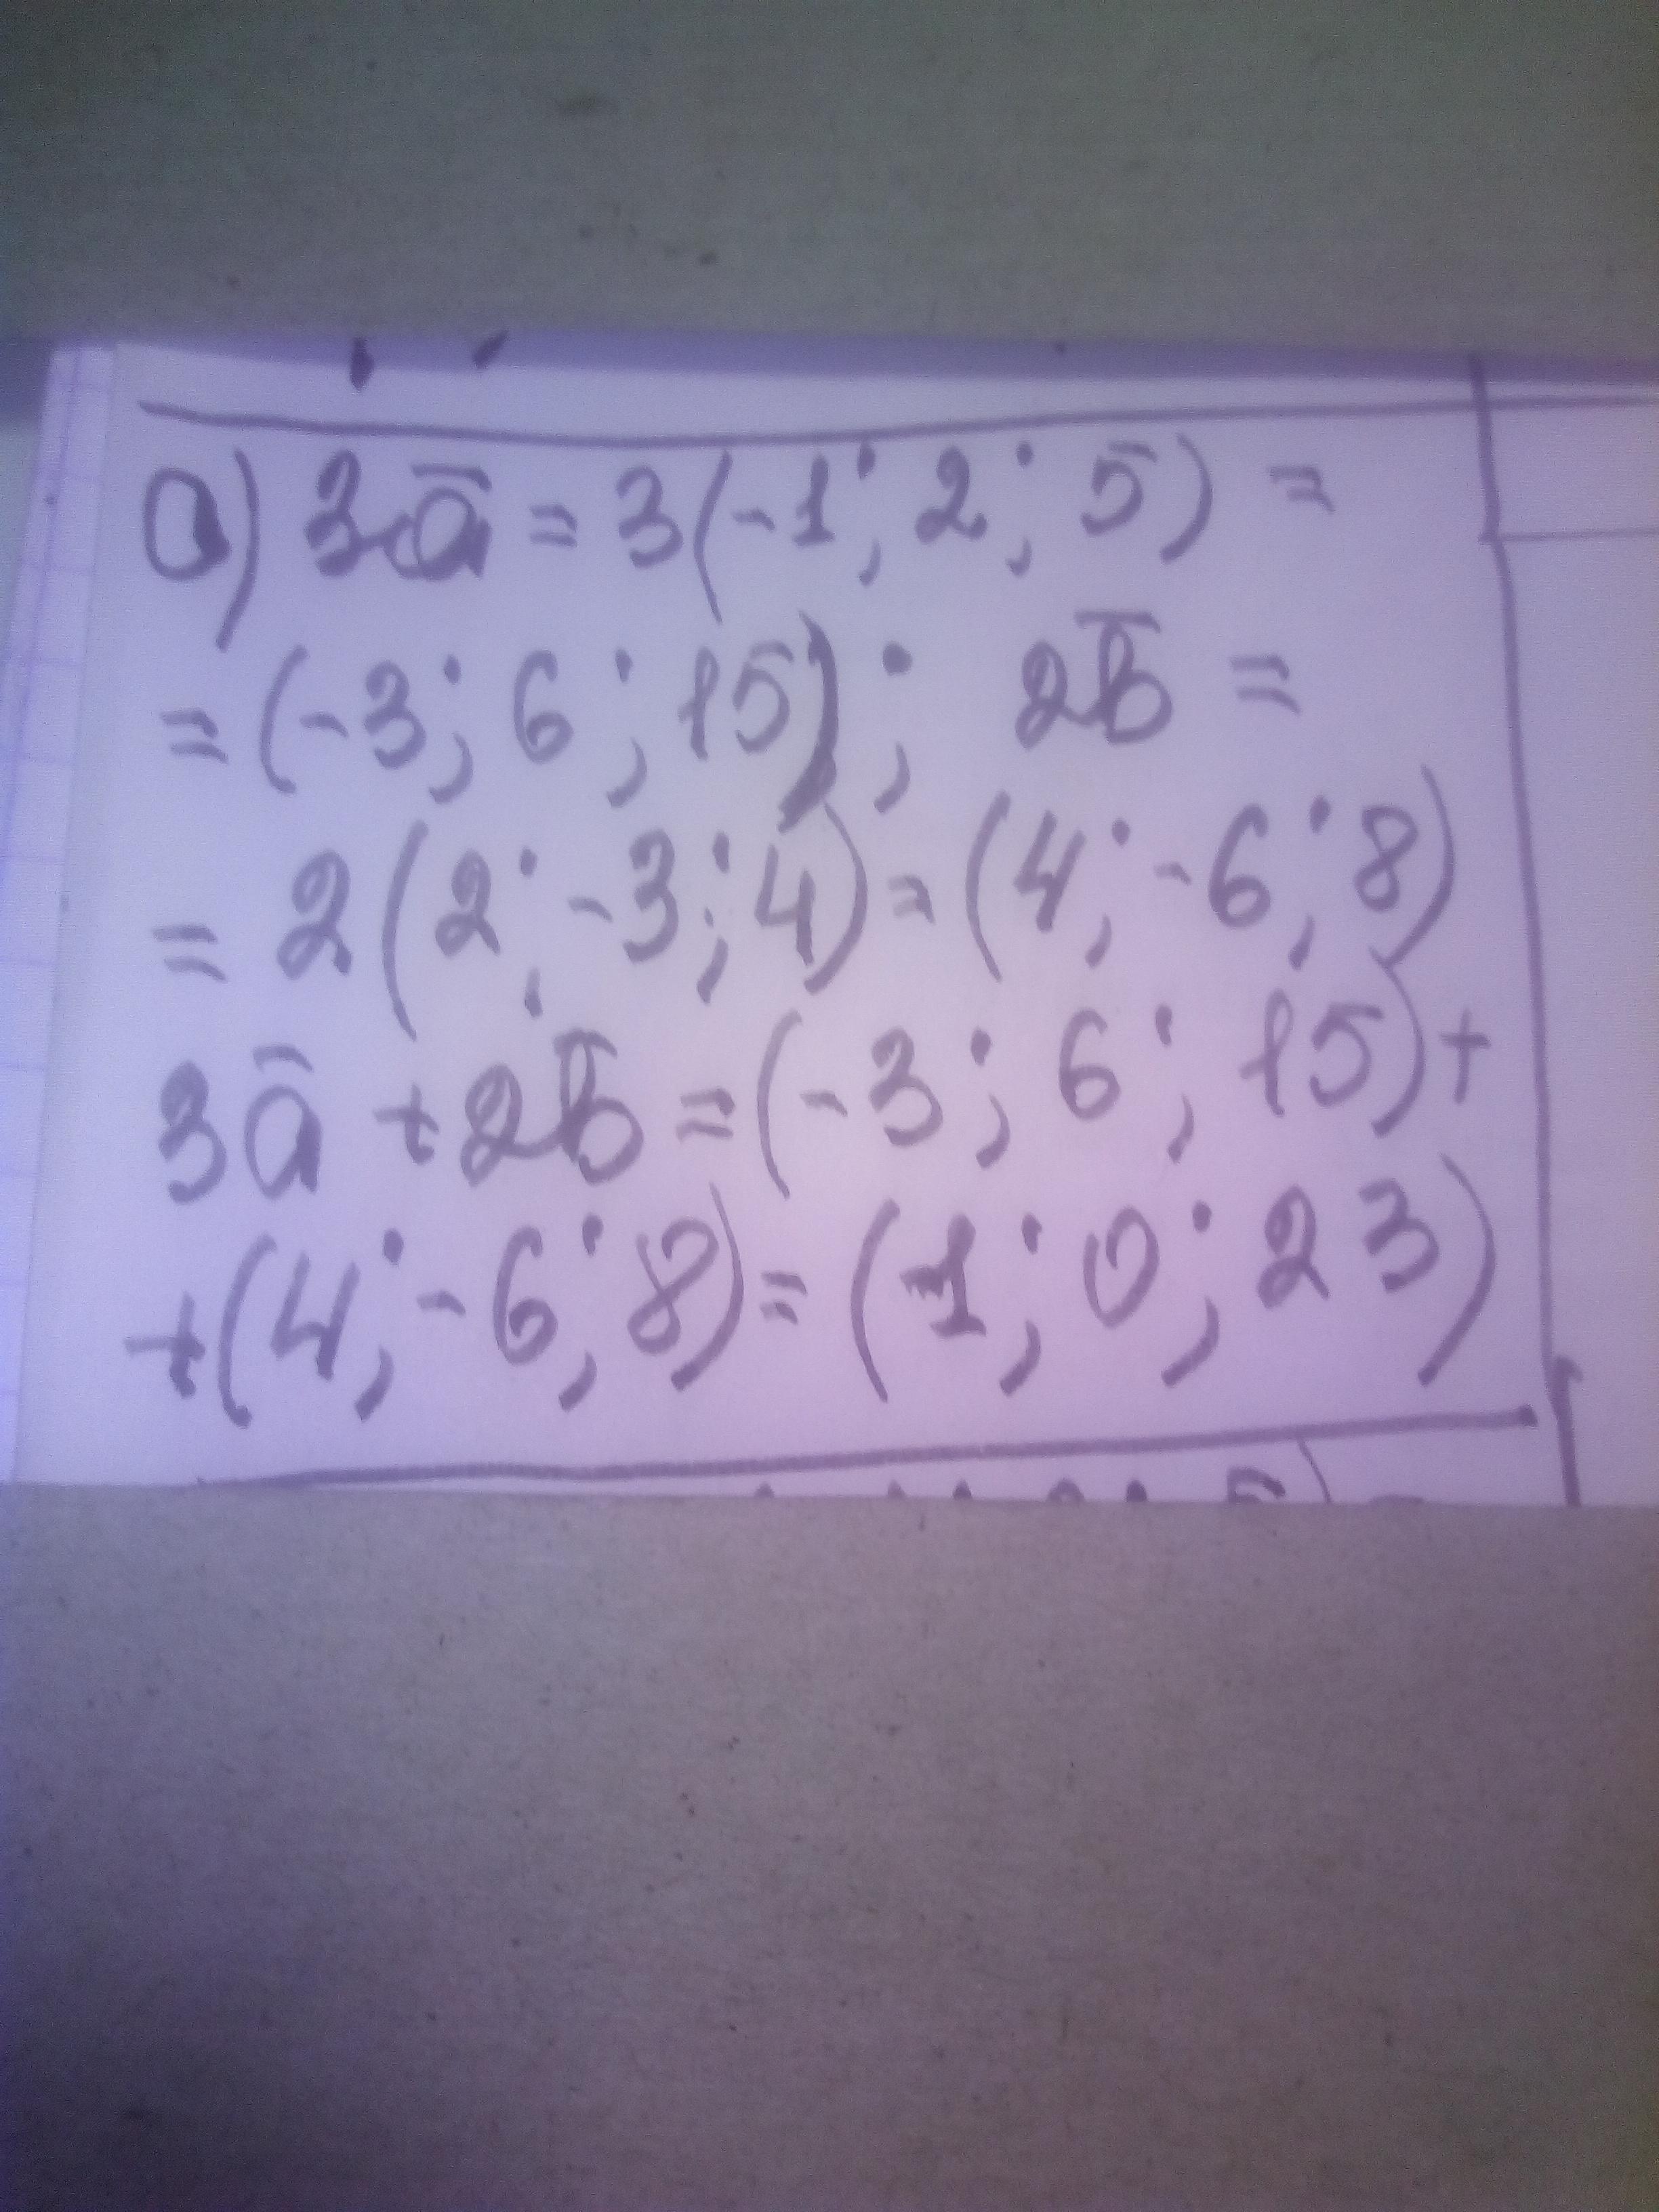 а) 3ā = 3(-1; 2; 5) =
= (-3; 6; 15); 2b̄ =
= 2(2; -3; 4) = (4; -6; 8)
3ā + 2b̄ = (-3; 6; 15) +
+ (4; -6; 8) = (1; 0; 23)